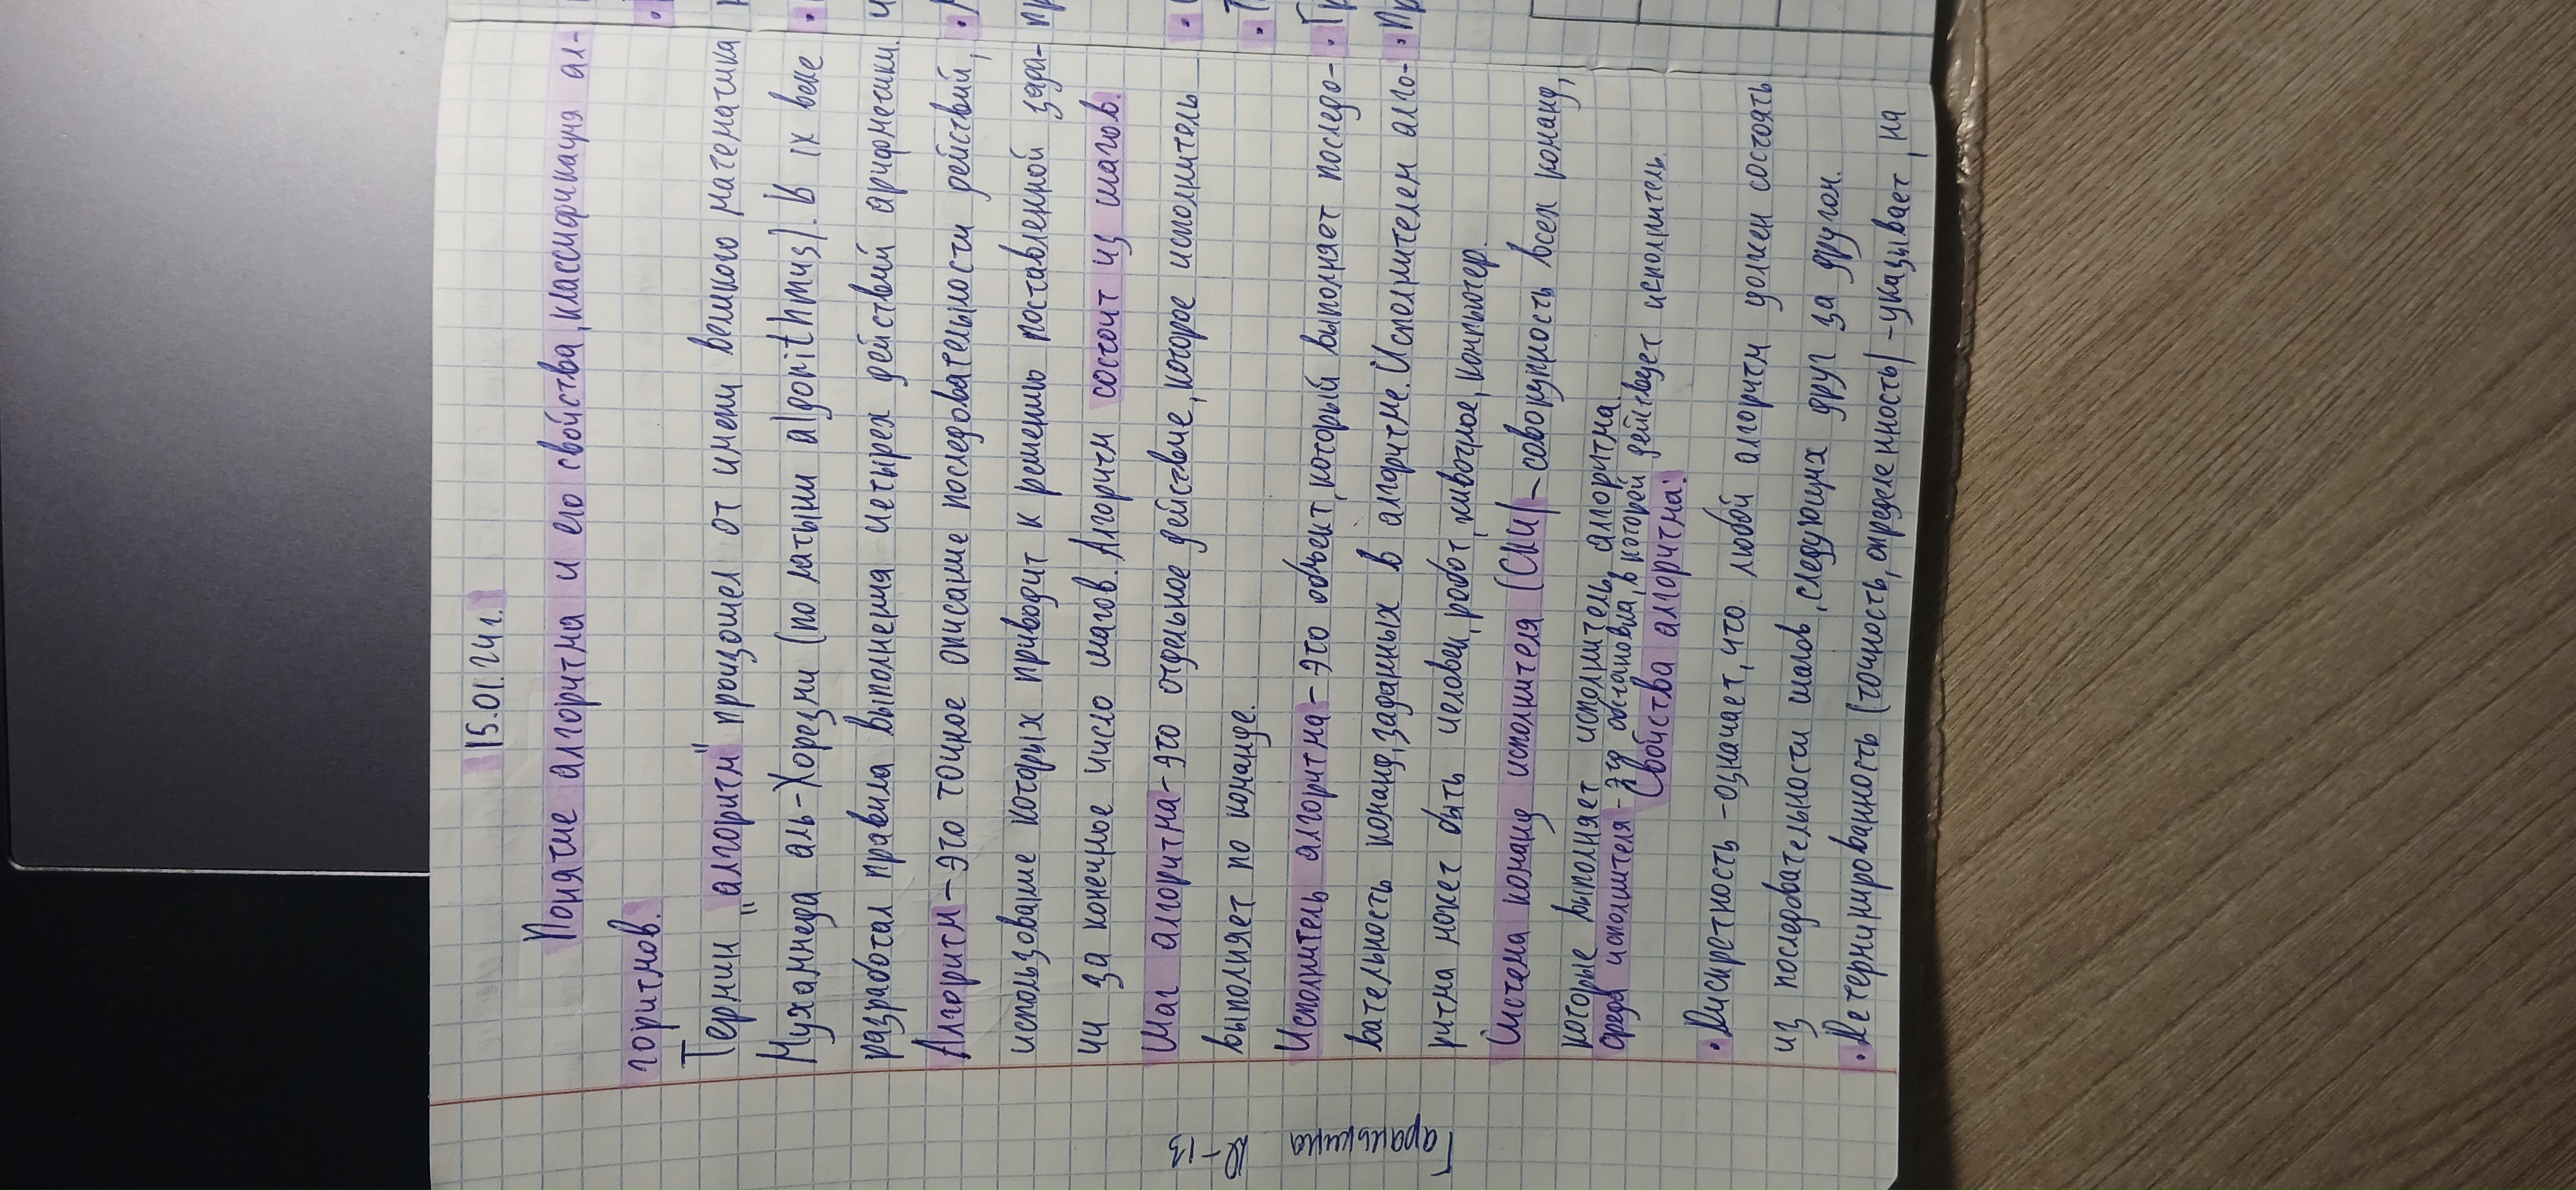 15.01.24г.
Понятие алгоритма и его свойства, классификация ал-
горитмов.
Термин "алгоритм" произошел от имени великого математика
Мухаммеда аль-Хорезми (по латыни algorithmus). В IX веке
разработал правила выполнения четырех действий арифметики.
Алгоритм - это точное описание последовательности действий,
использование которых приводит к решению поставленной зада-
чи за конечное число шагов. Алгоритм состоит из шагов.
Шаг алгоритма - это отдельное действие, которое исполнитель
выполняет по команде.
Исполнитель алгоритма - это объект, который выполняет последо-
вательность команд, заданных в алгоритме. Исполнителем алго-
ритма может быть человек, робот, животное, компьютер.
Система команд исполнителя (СКИ) - совокупность всех команд,
которые выполняет исполнитель алгоритма.
среда исполнителя - это обстановка, в которой действует исполнитель.
Свойства алгоритма:
• Дискретность - означает, что любой алгоритм должен состоять
из последовательности шагов, следующих друг за другом.
• Детерминированность (точность, определенность) - указывает, на
Гаранькина